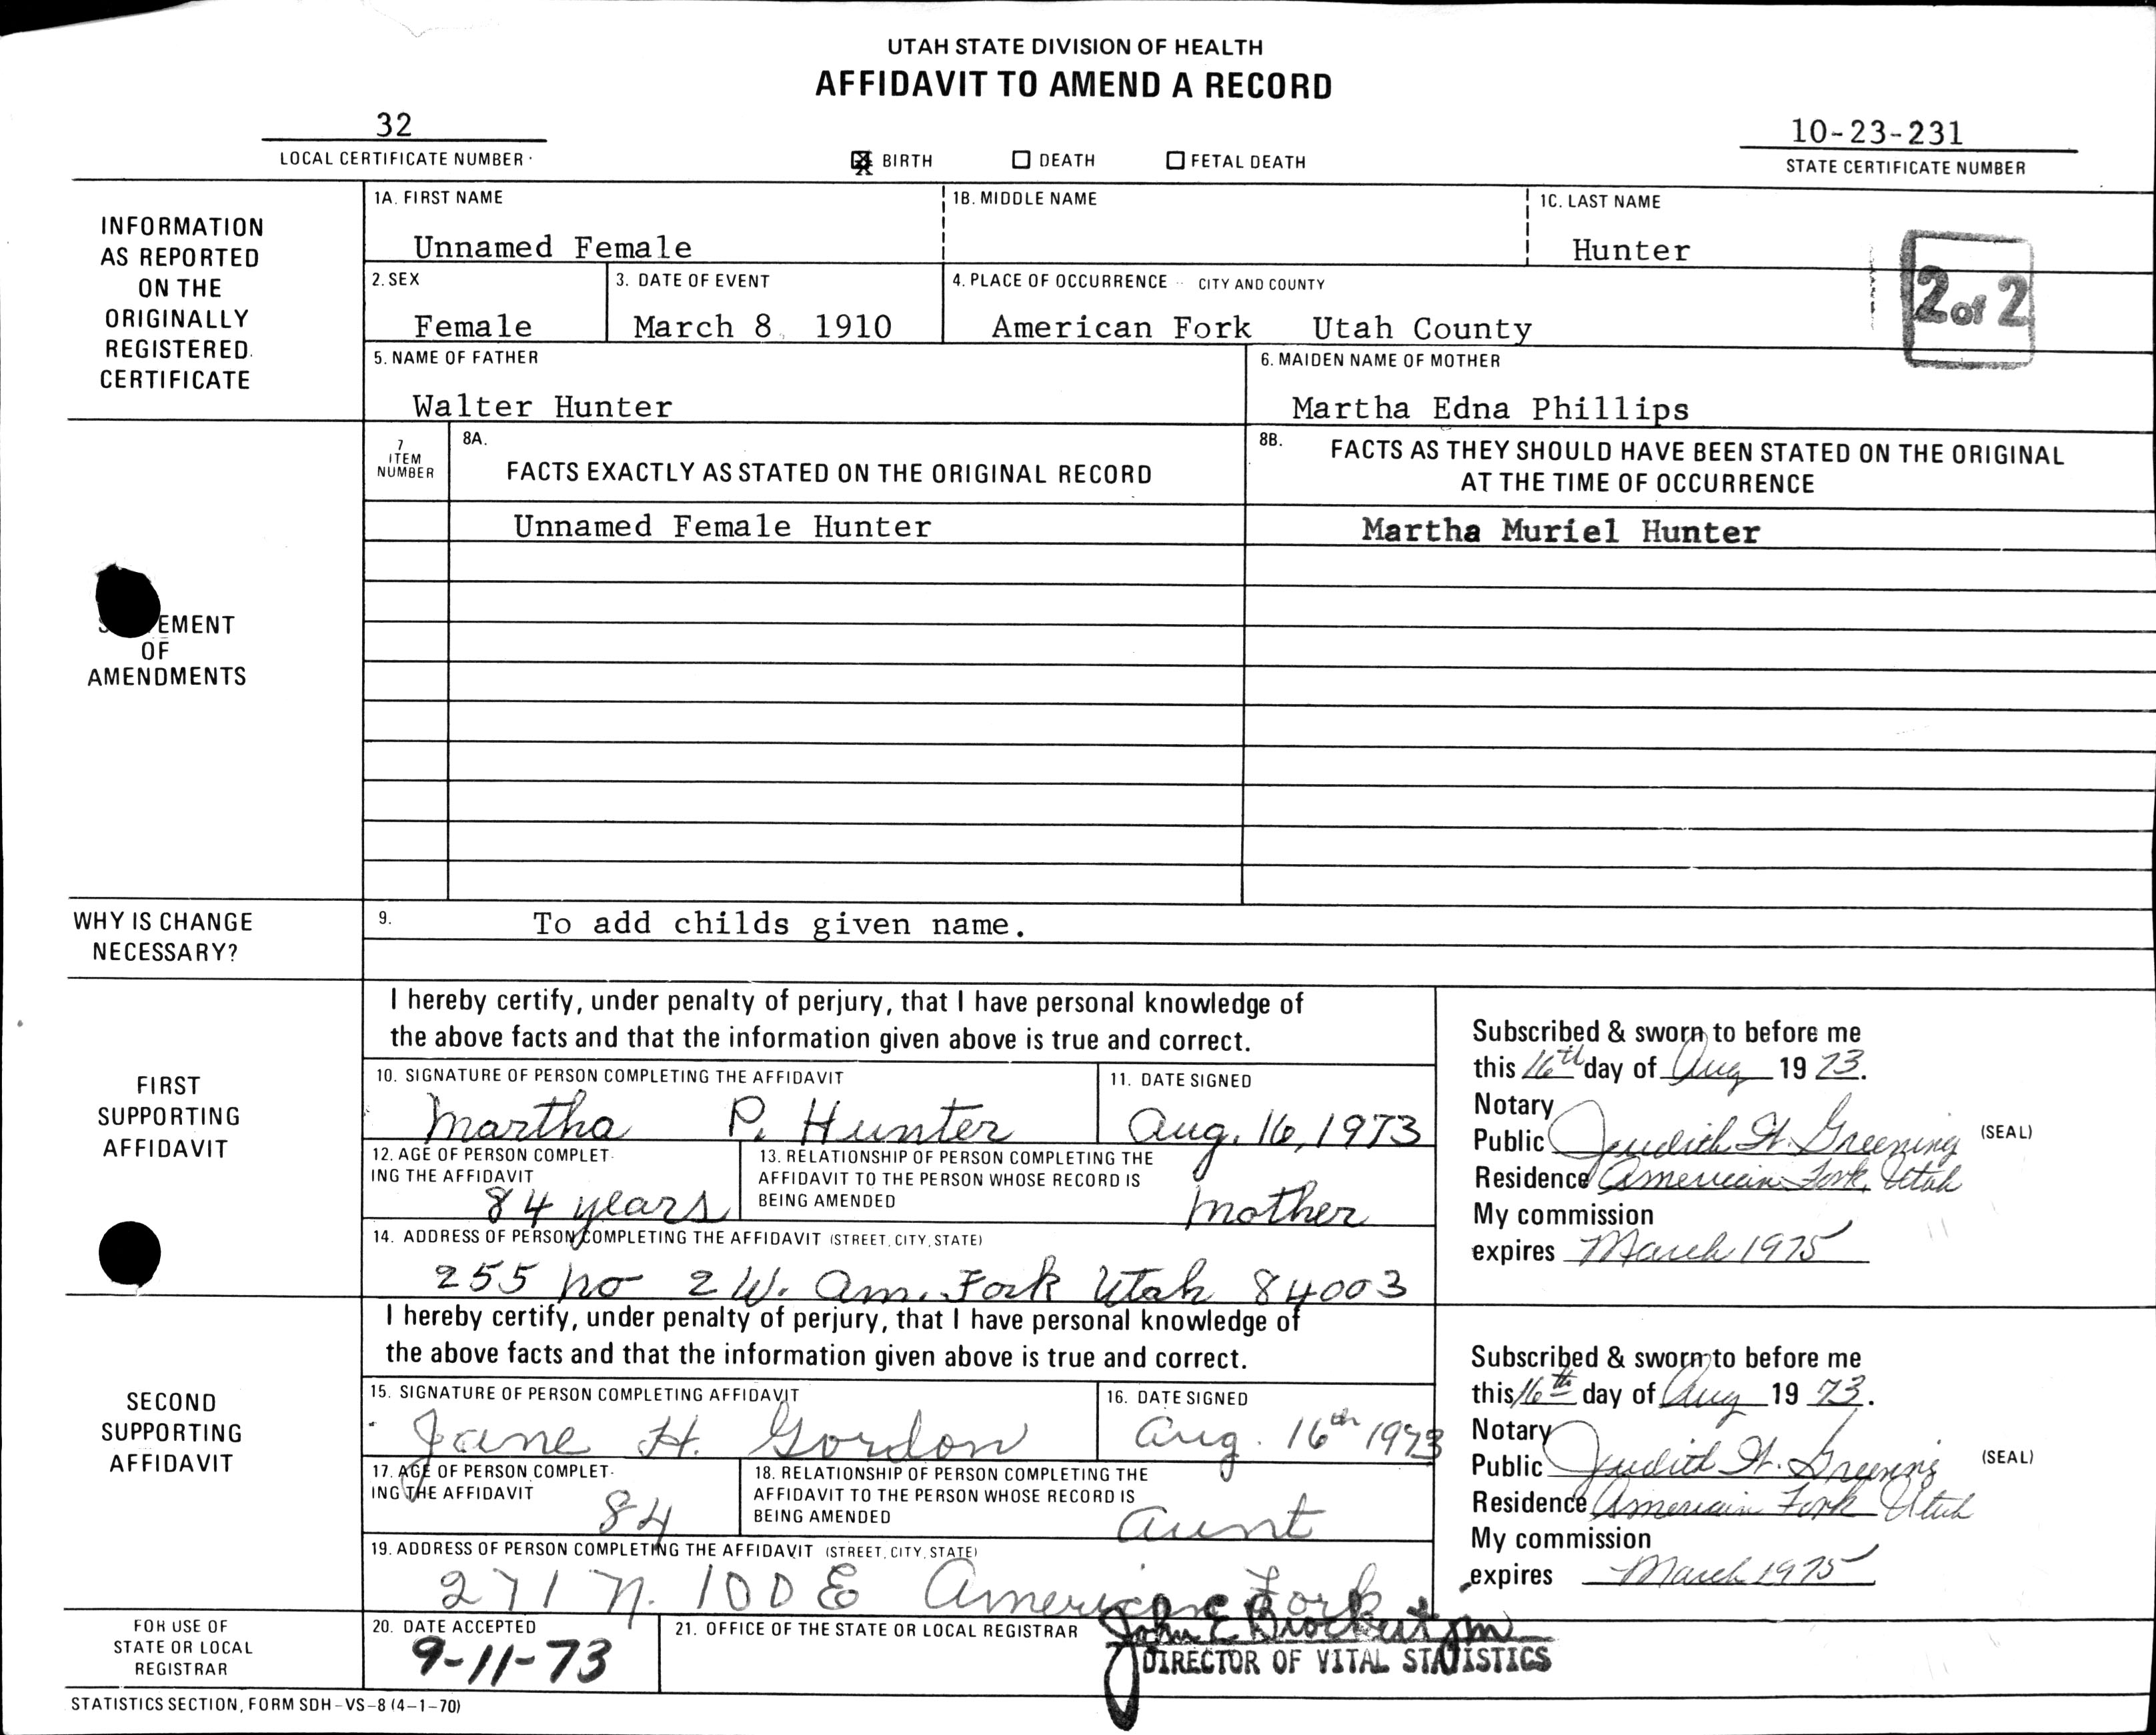 UTAH STATE DIVISION OF HEALTH
AFFIDAVIT TO AMEND A RECORD
32
LOCAL CERTIFICATE NUMBER
☒ BIRTH ☐ DEATH ☐ FETAL DEATH
10-23-231
STATE CERTIFICATE NUMBER
INFORMATION
AS REPORTED
ON THE
ORIGINALLY
REGISTERED
CERTIFICATE
1A. FIRST NAME
Unnamed Female
1B. MIDDLE NAME
1C. LAST NAME
Hunter
2 of 2
2. SEX
Female
3. DATE OF EVENT
March 8, 1910
4. PLACE OF OCCURRENCE -- CITY AND COUNTY
American Fork Utah County
5. NAME OF FATHER
Walter Hunter
6. MAIDEN NAME OF MOTHER
Martha Edna Phillips
EMENT
OF
AMENDMENTS
7
ITEM
NUMBER
8A.
FACTS EXACTLY AS STATED ON THE ORIGINAL RECORD
8B. FACTS AS THEY SHOULD HAVE BEEN STATED ON THE ORIGINAL
AT THE TIME OF OCCURRENCE
Unnamed Female Hunter
Martha Muriel Hunter
WHY IS CHANGE
NECESSARY?
9. To add childs given name.
FIRST
SUPPORTING
AFFIDAVIT
I hereby certify, under penalty of perjury, that I have personal knowledge of
the above facts and that the information given above is true and correct.
10. SIGNATURE OF PERSON COMPLETING THE AFFIDAVIT
Martha P. Hunter
11. DATE SIGNED
Aug. 16, 1973
12. AGE OF PERSON COMPLET-
ING THE AFFIDAVIT
84 years
13. RELATIONSHIP OF PERSON COMPLETING THE
AFFIDAVIT TO THE PERSON WHOSE RECORD IS
BEING AMENDED
Mother
14. ADDRESS OF PERSON COMPLETING THE AFFIDAVIT (STREET, CITY, STATE)
255 No 2 W. Am. Fork Utah 84003
Subscribed & sworn to before me
this 16th day of Aug 1973.
Notary
Public Judith H. Greening (SEAL)
Residence American Fork, Utah
My commission
expires March 1975
SECOND
SUPPORTING
AFFIDAVIT
I hereby certify, under penalty of perjury, that I have personal knowledge of
the above facts and that the information given above is true and correct.
15. SIGNATURE OF PERSON COMPLETING AFFIDAVIT
Jane H. Gordon
16. DATE SIGNED
Aug. 16th 1973
17. AGE OF PERSON COMPLET-
ING THE AFFIDAVIT
84
18. RELATIONSHIP OF PERSON COMPLETING THE
AFFIDAVIT TO THE PERSON WHOSE RECORD IS
BEING AMENDED
Aunt
19. ADDRESS OF PERSON COMPLETING THE AFFIDAVIT (STREET, CITY, STATE)
271 N. 100 E American Fork
Subscribed & sworn to before me
this 16th day of Aug 1973.
Notary
Public Judith H. Greening (SEAL)
Residence American Fork Utah
My commission
expires March 1975
FOR USE OF
STATE OR LOCAL
REGISTRAR
20. DATE ACCEPTED
9-11-73
21. OFFICE OF THE STATE OR LOCAL REGISTRAR
John E Brockert
DIRECTOR OF VITAL STATISTICS
STATISTICS SECTION, FORM SDH-VS-8 (4-1-70)